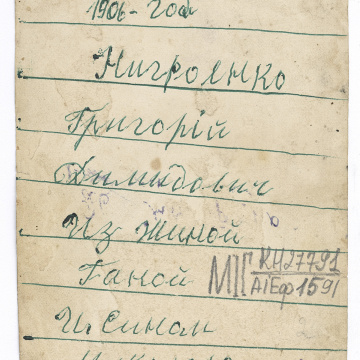 1906-год
Нигроенко
Григорій
Димидович
Из жиной
Ганой
МІГ КН27791
АІЕф1591
И Сином